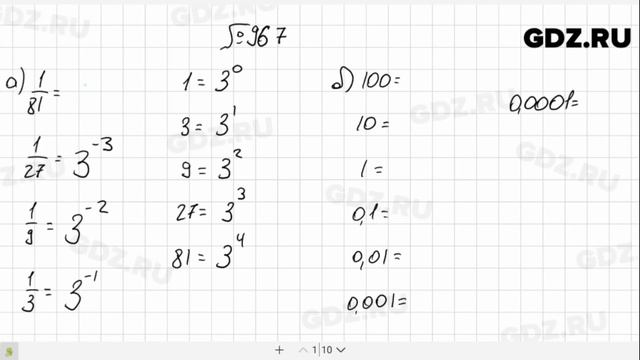 № 967
GDZ.RU
а) 1/81 =
1/27 = 3⁻³
1/9 = 3⁻²
1/3 = 3⁻¹
1 = 3⁰
3 = 3¹
9 = 3²
27 = 3³
81 = 3⁴
б) 100 =
10 =
1 =
0,1 =
0,01 =
0,001 =
0,0001 =
1 | 10